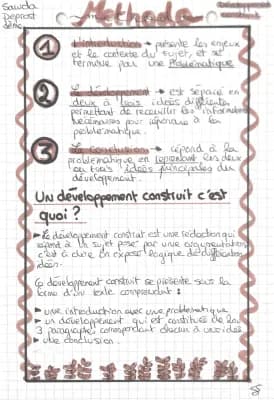 Sawda
Deprost
3ème
Methodo
Développement
construit
1 L'introduction → présente les enjeux
et le contexte du sujet, et se
termine par une Problématique
2 Le développement → est séparé en
deux à trois idées différentes
permettant de recueillir les informations
nécessaires pour répondre à la
problématique.
3 La conclusion → répond à la
problématique en reprenant les deux
ou trois idées principales du
développement.
Un développement construit c'est
quoi ?
Le développement construit est une rédaction qui
répond à un sujet posé par une argumentation
c'est à dire en exposé logique de différentes
idées.
Le développement construit se présente sous la
forme d'un texte comprenant :
▸ une introduction avec une problématique
▸ un développement qui est constitué de 2 à
3 paragraphes correspondant chacun à une idée
▸ une conclusion.